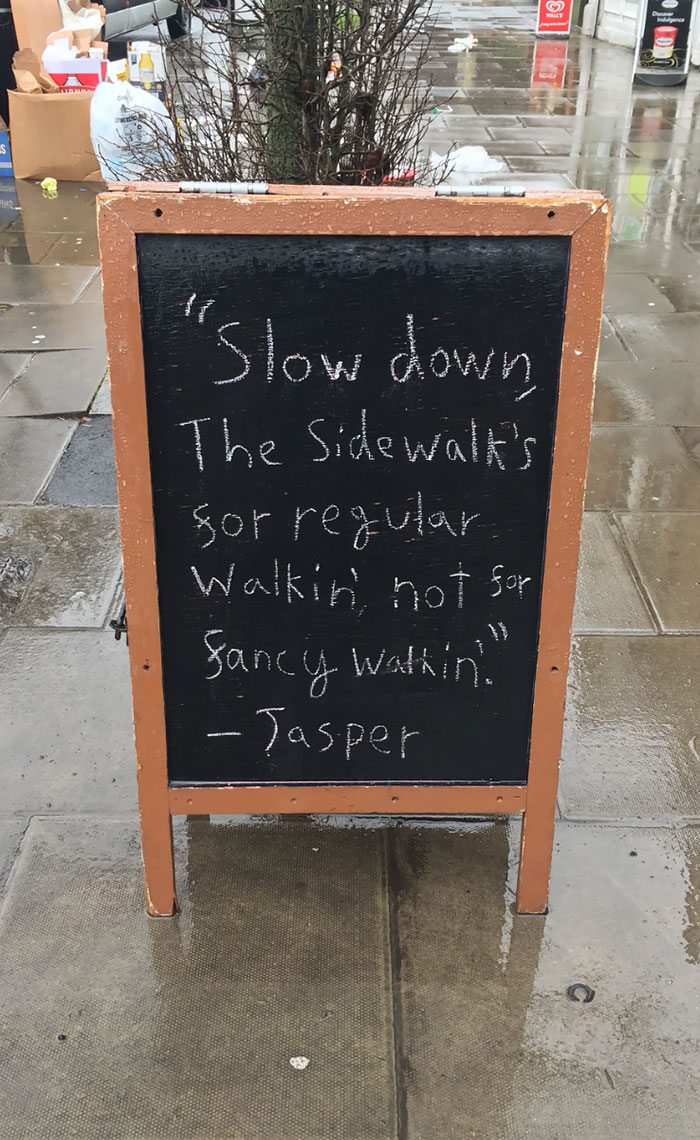 "Slow down,
The Sidewalk's
for regular
Walkin', not for
fancy walkin'."
- Jasper
WALL'S
Discover
Indulgence